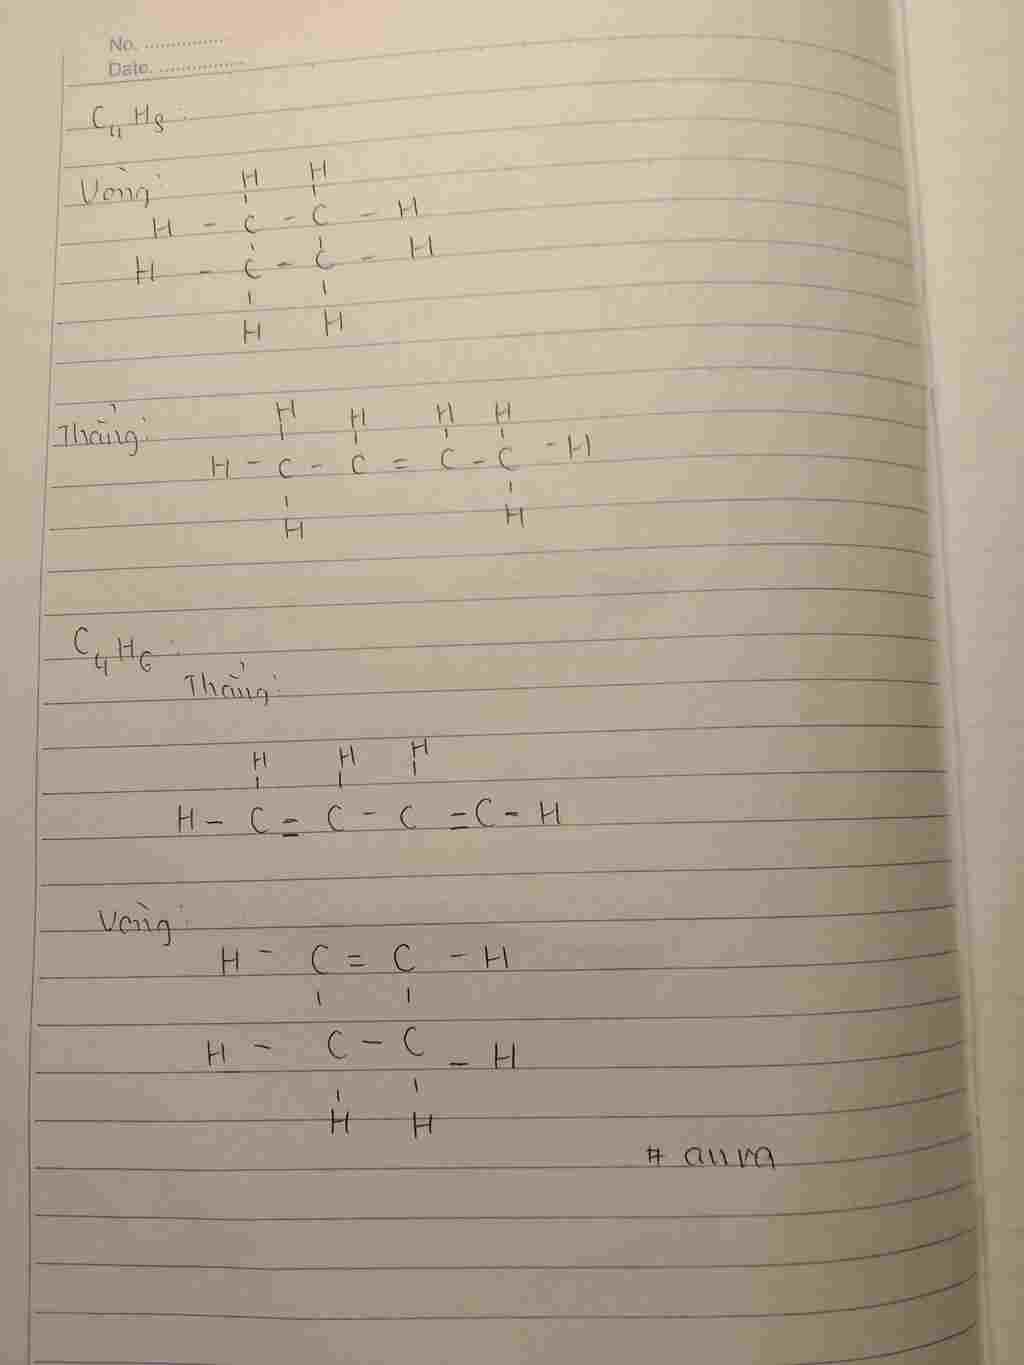 No. ................
Date. ..................
C₄H₈ :
Vòng:
H H
H - C - C - H
H - C - C - H
H H
Thẳng:
H H H H
H - C - C = C - C - H
H H
C₄H₆ :
Thẳng:
H H H
H - C = C - C = C - H
Vòng:
H - C = C - H
H - C - C - H
H H
# aura